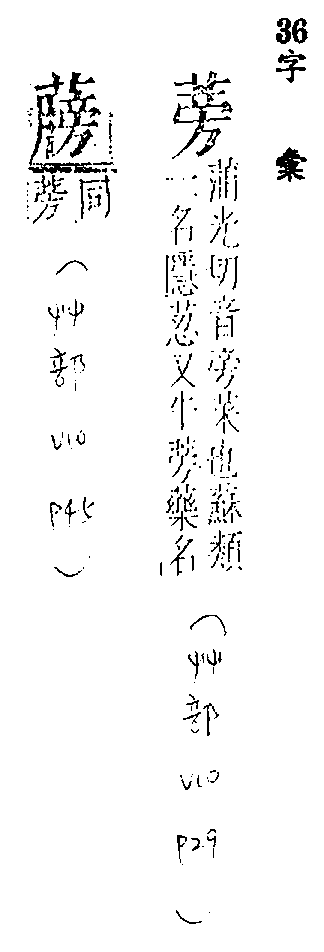 36字 彙
蒡 蒲光切音旁菜也蘇類
一名隱荵又牛蒡藥名
(艸部 V10 P29)
同
蒡
(艸部 V10 P45)